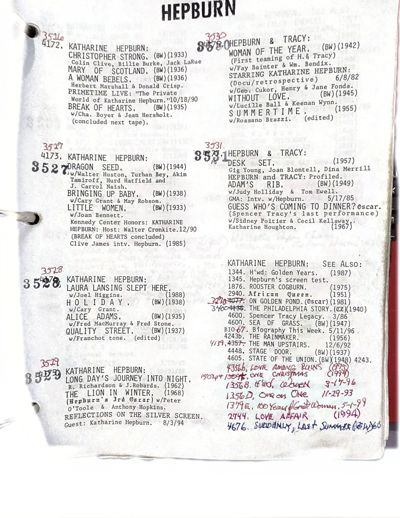 HEPBURN
3526
4172. KATHARINE HEPBURN:
CHRISTOPHER STRONG. (BW)(1933)
Colin Clive, Billie Burke, Jack LaRue
MARY OF SCOTLAND. (BW)(1936)
A WOMAN REBELS. (BW)(1936)
Herbert Marshall & Donald Crisp.
PRIMETIME LIVE: "The Private
World of Katharine Hepburn."10/18/90
BREAK OF HEARTS. (BW)(1935)
w/Cha. Boyer & Jean Hersholt.
(concluded next tape).
3527
4173. KATHARINE HEPBURN:
3527
DRAGON SEED. (BW)(1944)
w/Walter Huston, Turhan Bey, Akim
Tamiroff, Hurd Hatfield and
J. Carrol Naish.
BRINGING UP BABY. (BW)(1938)
w/Cary Grant & May Robson.
LITTLE WOMEN. (BW)(1933)
w/Joan Bennett.
Kennedy Center Honors: KATHARINE
HEPBURN: Host: Walter Cronkite.12/90
(BREAK OF HEARTS concluded)
Clive James intv. Hepburn. (1985)
3528
3528
KATHARINE HEPBURN:
LAURA LANSING SLEPT HERE.
w/Joel Higgins. (1988)
HOLIDAY. (BW)(1938)
w/Cary Grant.
ALICE ADAMS. (BW)(1935)
w/Fred MacMurray & Fred Stone.
QUALITY STREET. (BW)(1937)
w/Franchot Tone. (edited)
3529
3529
KATHARINE HEPBURN:
LONG DAY'S JOURNEY INTO NIGHT.
R. Richardson & J.Robards. (1962)
THE LION IN WINTER. (1968)
(Hepburn's 3rd Oscar) w/Peter
O'Toole & Anthony Hopkins.
REFLECTIONS ON THE SILVER SCREEN.
Guest: Katharine Hepburn. 8/3/94
3530
HEPBURN & TRACY:
WOMAN OF THE YEAR. (BW)(1942)
(First teaming of H.& Tracy)
w/Fay Bainter & Wm. Bendix.
STARRING KATHARINE HEPBURN:
(Docu/retrospective) 6/8/82
w/Geo. Cukor, Henry & Jane Fonda.
WITHOUT LOVE. (BW)(1945)
w/Lucille Ball & Keenan Wynn.
SUMMERTIME. (1955)
w/Rossano Brazzi. (edited)
3531
3531
HEPBURN & TRACY:
DESK SET. (1957)
Gig Young, Joan Blondell, Dina Merrill
HEPBURN and TRACY: Profiled.
ADAM'S RIB. (BW)(1949)
w/Judy Holliday & Tom Ewell.
GMA: Intv. w/Hepburn. 5/17/85
GUESS WHO'S COMING TO DINNER?oscar.
(Spencer Tracy's last performance)
w/Sidney Poitier & Cecil Kellaway,
Katharine Houghton. (1967)
KATHARINE HEPBURN: SEE ALSO:
1344. H'wd: Golden Years. (1987)
1345. Hepburn's screen test.
1876. ROOSTER COGBURN. (1975)
2940. African Queen. (1951)
ON GOLDEN POND. (Oscar)(1981)
THE PHILADELPHIA STORY.(1940)
4600. Spencer Tracy Legacy. 3/86
4600. SEA OF GRASS. (BW)(1947)
Biography This Week. 5/11/96
4243b. THE RAINMAKER. (1956)
THE MAN UPSTAIRS. 12/6/92
4448. STAGE DOOR. (BW)(1937)
4605. STATE OF THE UNION. (BW)(1948) 4243.
LOVE AMONG RUINS
ONE CHRISTMAS (1994)
1356B. 3-17-96
1356D. ONE ON ONE 11-29-93
1379E. 100 Years/Great Women. 5-1-99
2944. LOVE AFFAIR (1994)
4676. SUDDENLY, LAST SUMMER (BW)60